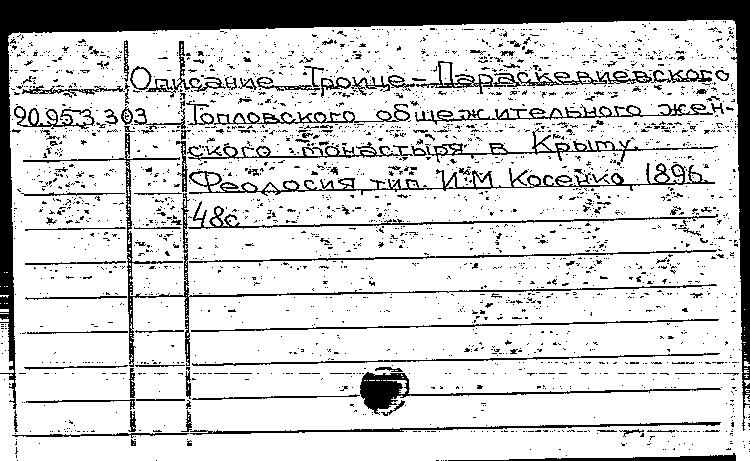 Описание Троице-Параскевиевского
90.953.303 Топловского общежительного жен-
ского монастыря в Крыму.
Феодосия, тип. И.М. Косенко, 1896.
48с